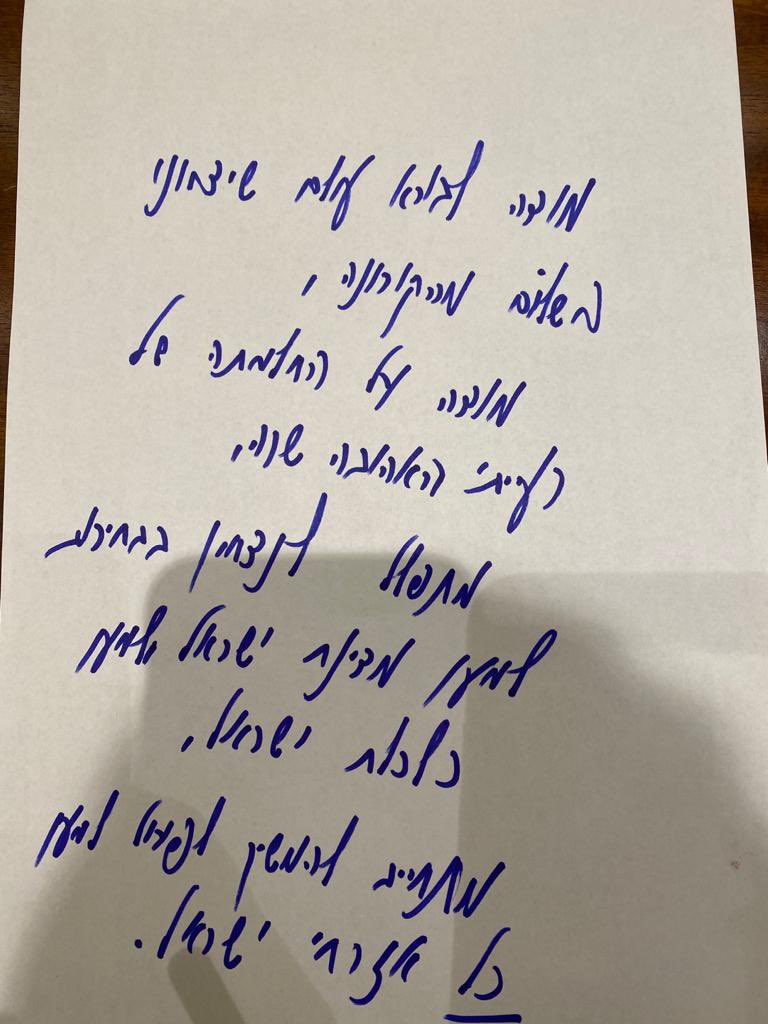 מודה לבורא עולם שיצאנו
בשלום מהקורונה,
מודה על החלמתה של
רעייתי האהובה שרי,
מתפלל לנצחון בבחירות
למען מדינת ישראל ולמען
כלכלת ישראל,
מתחייב להמשיך לפעול למען
כל אזרחי ישראל.